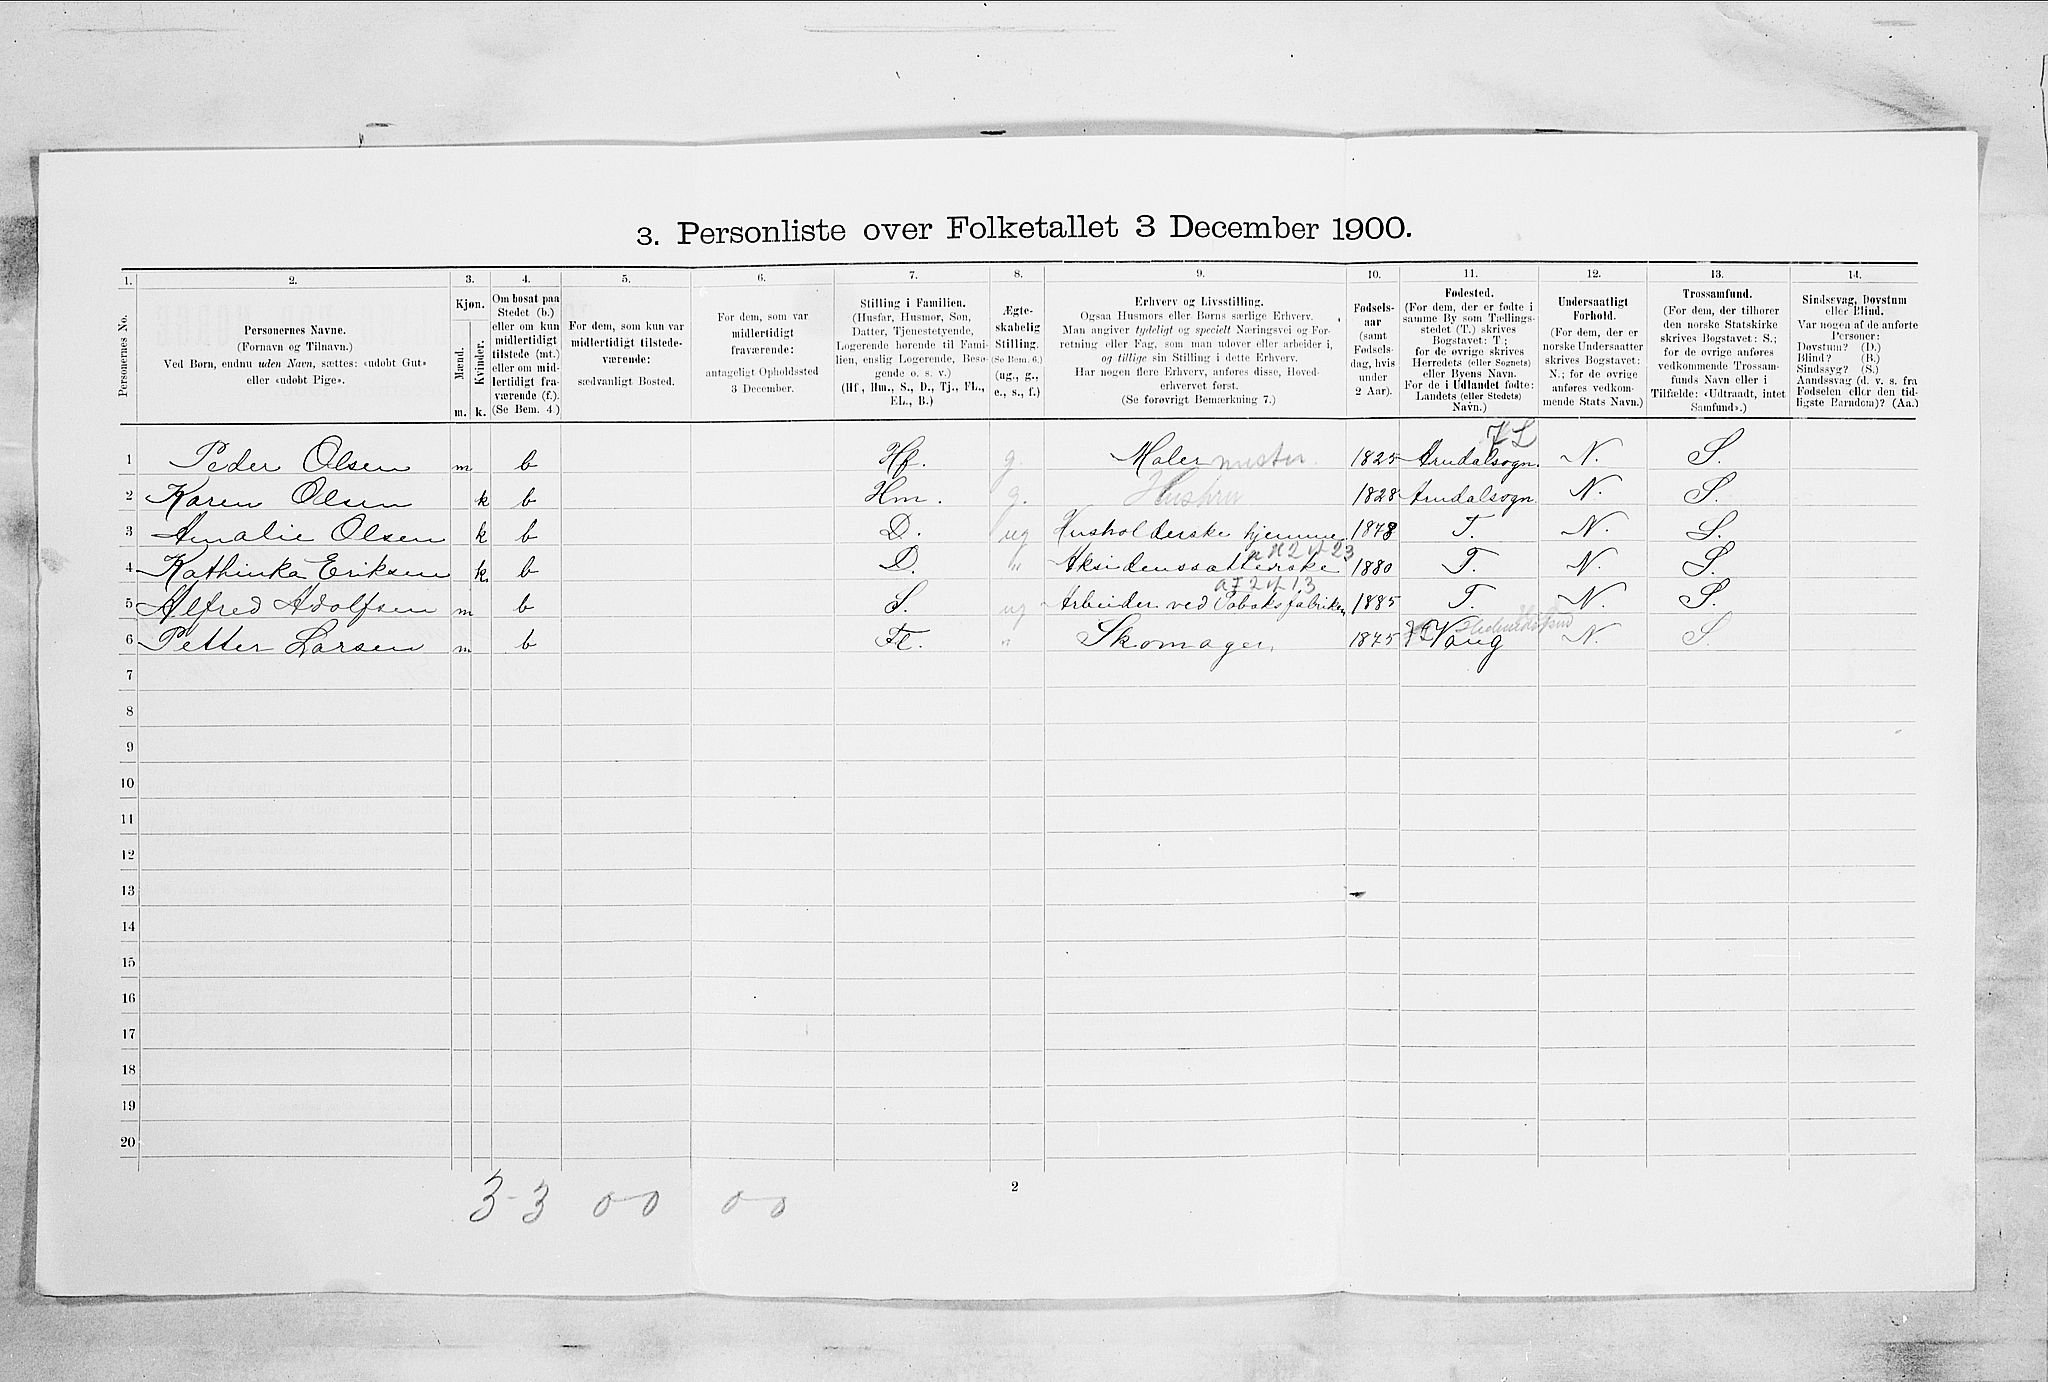 3. Personliste over Folketallet 3 December 1900.
1. 2. 3. 4. 5. 6. 7. 8. 9. 10. 11. 12. 13. 14.
Personernes No.
Personernes Navne.
(Fornavn og Tilnavn.)
Ved Børn, endnu uden Navn, sættes: «udøbt Gut»
eller «udøbt Pige».
Kjøn.
Mænd.
Kvinder.
m. k.
Om bosat paa
Stedet (b.)
eller om kun
midlertidigt
tilstede (mt.)
eller om mid-
lertidigt fra-
værende (f.).
(Se Bem. 4.)
For dem, som kun var
midlertidigt tilstede-
værende:
sædvanligt Bosted.
For dem, som var
midlertidigt
fraværende:
antageligt Opholdssted
3 December.
Stilling i Familien.
(Husfar, Husmor, Søn,
Datter, Tjenestetyende,
Logerende hørende til Fami-
lien, enslig Logerende, Besø-
gende o. s. v.)
(Hf., Hm., S., D., Tj., FL.,
EL., B.)
Ægte-
skabelig
Stilling.
(Se Bem. 6.)
(ug., g.,
e., s., f.)
Erhverv og Livsstilling.
Ogsaa Husmors eller Børns særlige Erhverv.
Man angiver tydeligt og specielt Næringsvei og For-
retning eller Fag, som man udøver eller arbeider i,
og tillige sin Stilling i dette Erhverv.
Har nogen flere Erhverv, anføres disse, Hoved-
erhvervet først.
(Se forøvrigt Bemærkning 7.)
Fødsels-
aar
(samt
Fødsels-
dag, hvis
under
2 Aar).
Fødested.
(For dem, der er fødte i
samme By som Tællings-
stedet (T.) skrives
Bogstavet: T;
for de øvrige skrives
Herredets (eller Sognets)
eller Byens Navn.
For de i Udlandet fødte:
Landets (eller Stedets)
Navn.)
Undersaatligt
Forhold.
(For dem, der er
norske Undersaatter
skrives Bogstavet:
N.; for de øvrige
anføres vedkom-
mende Stats Navn.)
Trossamfund.
(For dem, der tilhører
den norske Statskirke
skrives Bogstavet: S.;
for de øvrige anføres
vedkommende Trossam-
funds Navn eller i
Tilfælde: «Udtraadt, intet
Samfund».)
Sindssvag, Døvstum
eller Blind.
Var nogen af de anførte
Personer:
Døvstum? (D.)
Blind? (B.)
Sindssyg? (S.)
Aandssvag (d. v. s. fra
Fødselen eller den tid-
ligste Barndom)? (Aa.)
1 Peder Olsen m b Hf. g. Maler mester 1825 Arndalsogn. N. S.
2 Karen Olsen k b Hm. g. Hustru 1828 Arndalsogn N. S.
3 Amalie Olsen k b D. ug Husholderske hjemme 1878 T. N. S.
4 Kathinka Eriksen k. b D. " Aksidenssætterske 1880 T. N. S.
5 Alfred Adolfsen m b S. ug Arbeider ved Tobaksfabriken 1885 T. N. S.
6 Petter Larsen m b FL. " Skomager. 1875 Vang N. S.
7
8
9
10
11
12
13
14
15
16
17
18
19
20
3-3 0-0 0-0
2